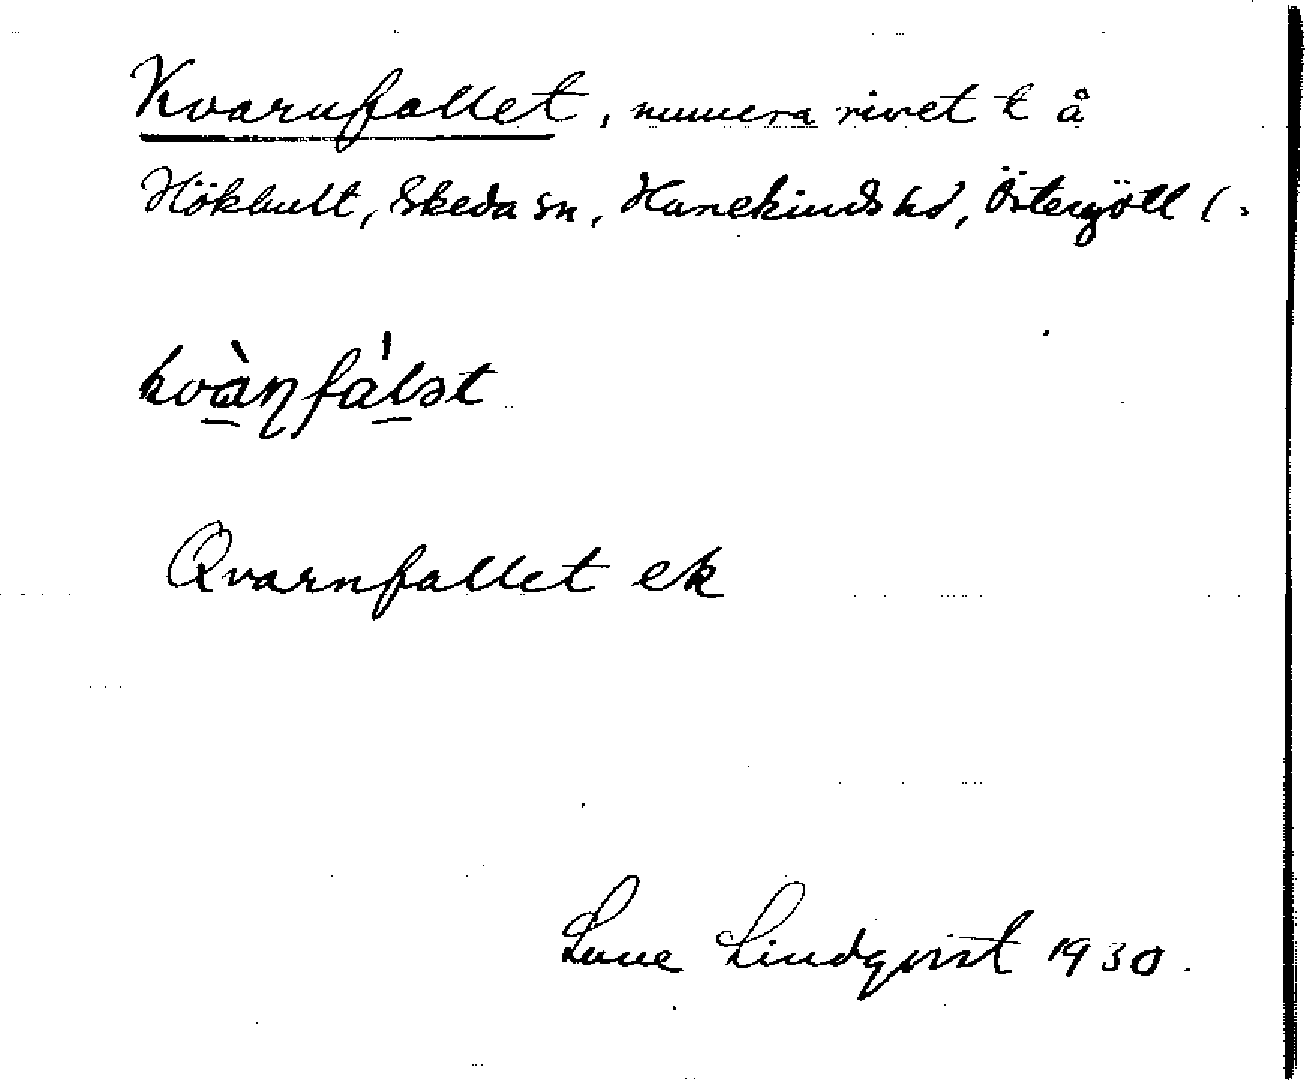 Kvarnfallet, numera rivet t å
Hökhult, Skeda sn, Hanekinds hd, Östergötl (.
kvàɳfálət
Qvarnfallet ek
Sune Lindqvist 1930.